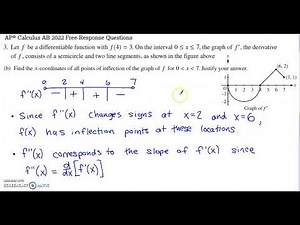 AP® Calculus AB 2022 Free-Response Questions
3. Let f be a differentiable function with f(4) = 3. On the interval 0 ≤ x ≤ 7, the graph of f', the derivative
of f, consists of a semicircle and two line segments, as shown in the figure above
(b) Find the x-coordinates of all points of inflection of the graph of f for 0 < x < 7. Justify your answer.
(6, 2)
(7, 1)
Graph of f'
0 2 4 6 7
f''(x) - + + -
• Since f''(x) changes signs at x=2 and x=6,
f(x) has inflection points at these locations.
• f''(x) corresponds to the slope of f'(x) since
f''(x) = d/dx [f'(x)]